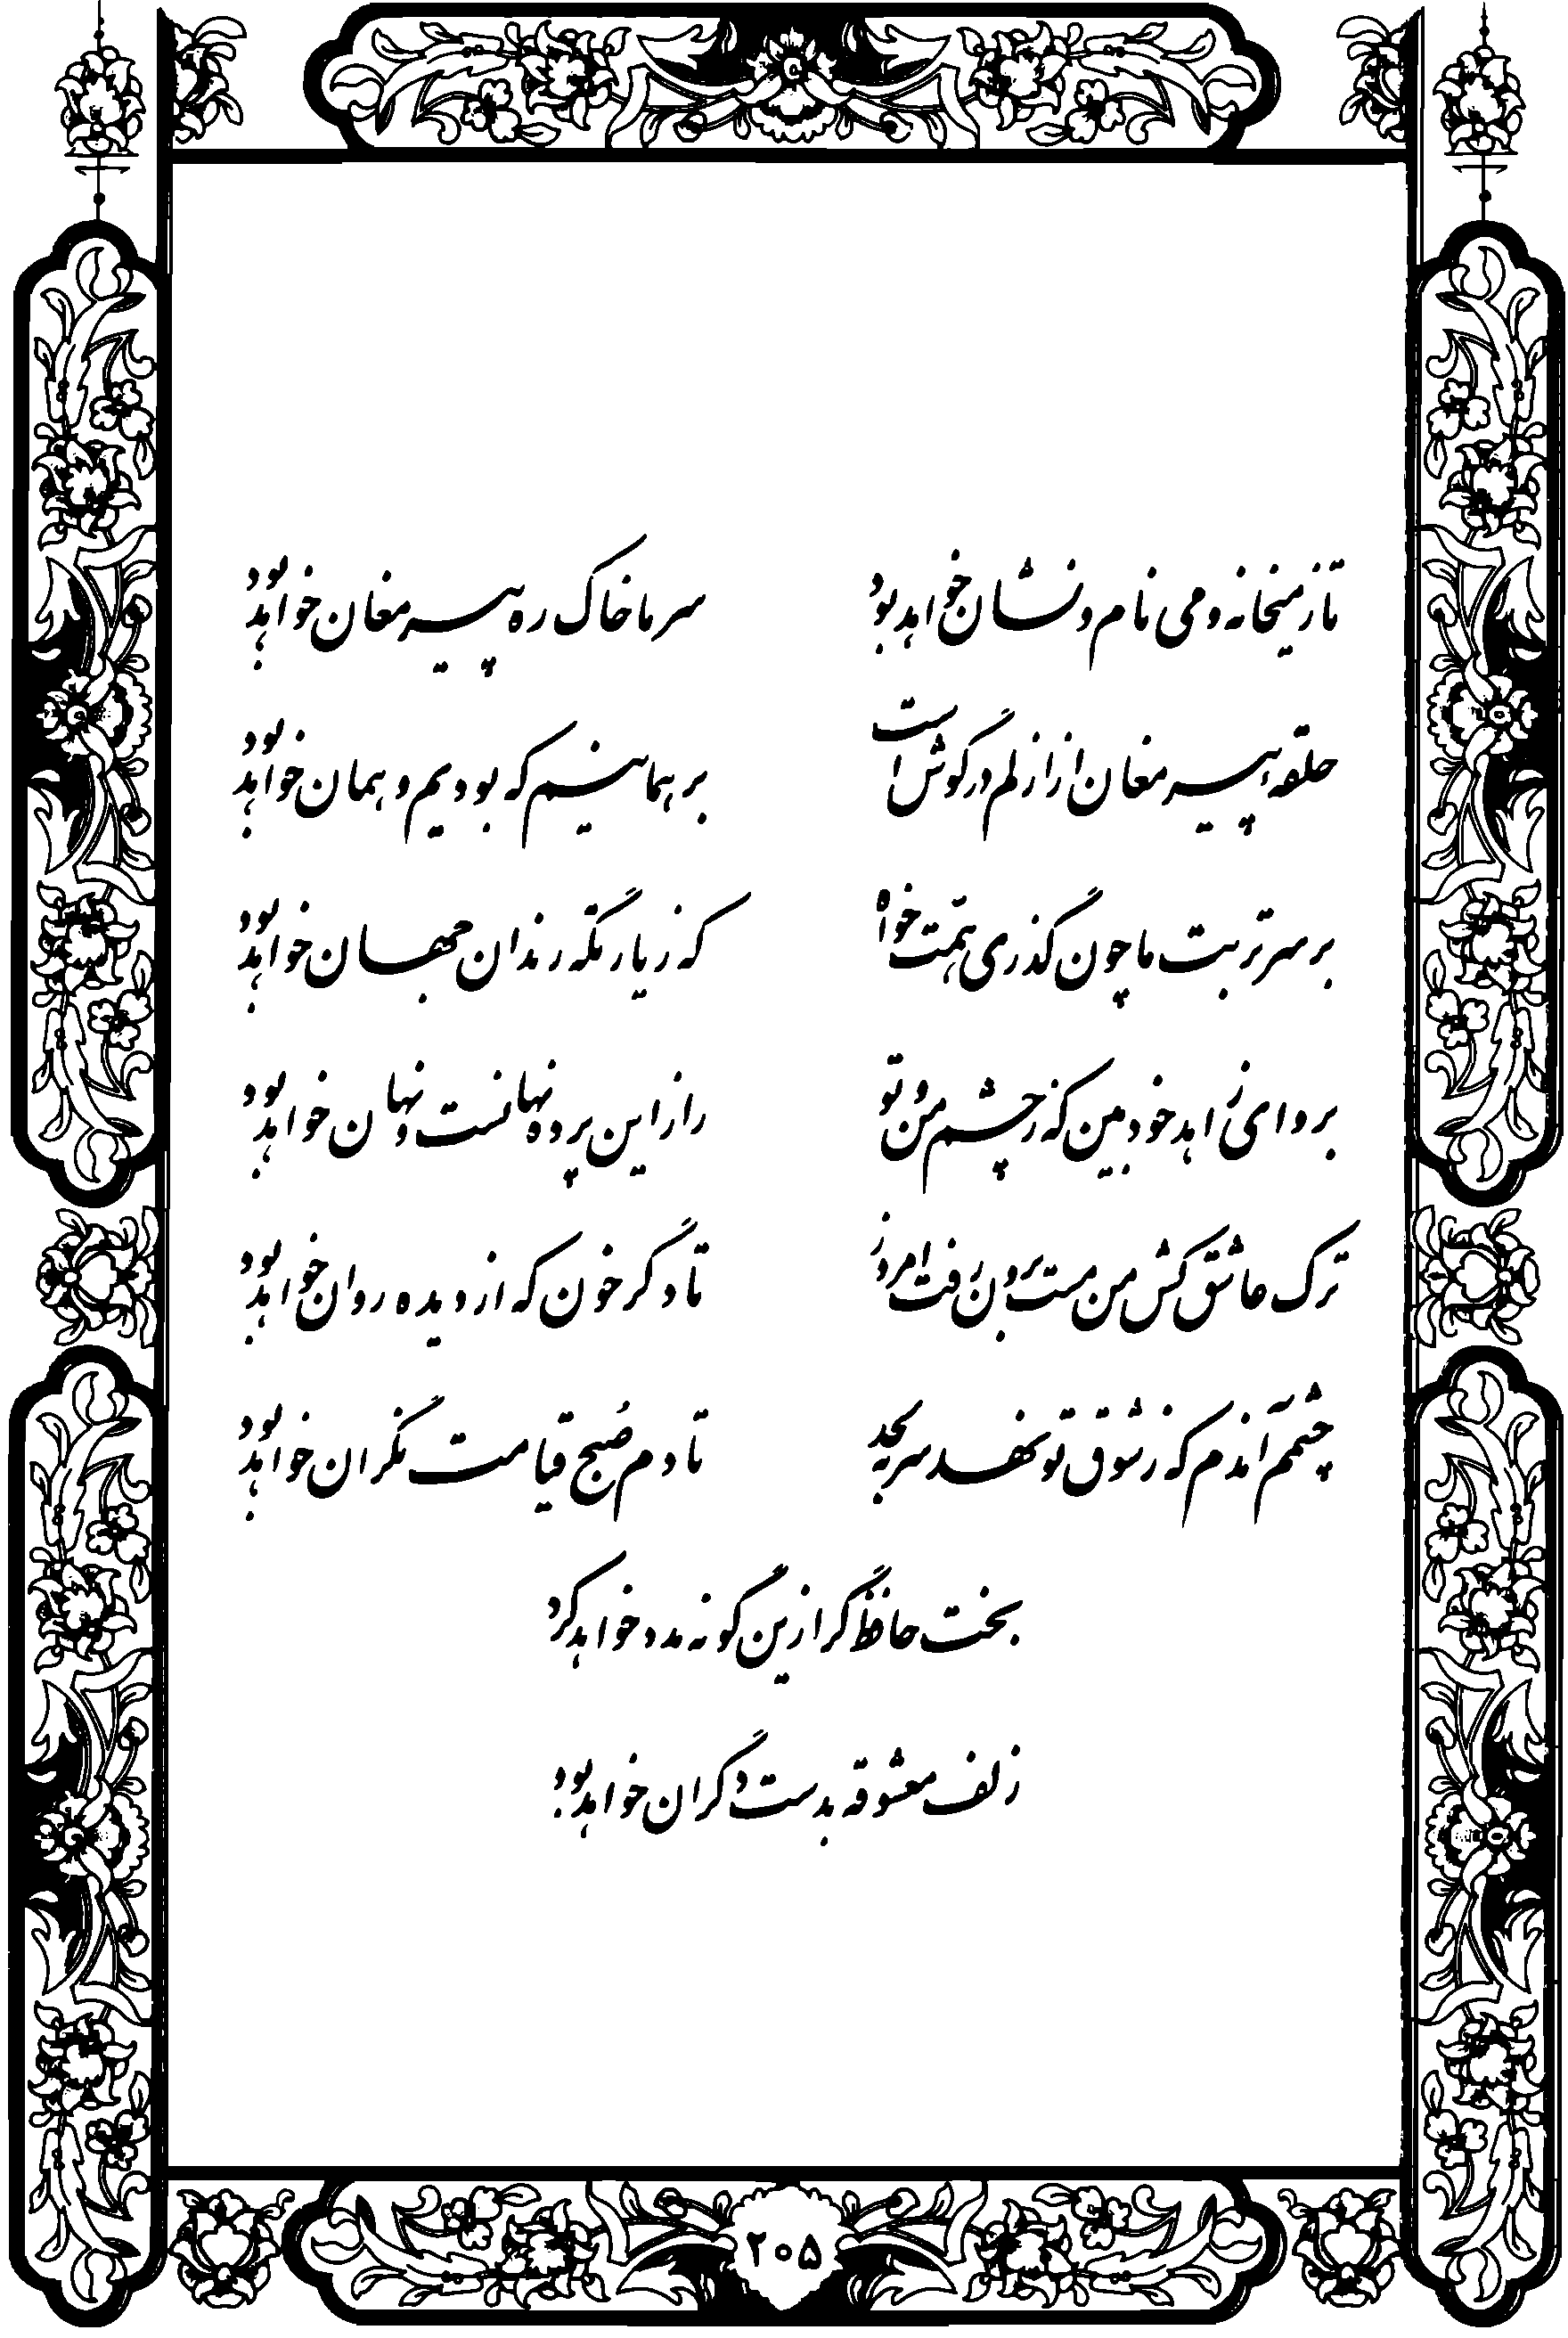 تا ز میخانه و می نام و نشان خواهد بود
سر ما خاک ره پیر مغان خواهد بود
حلقهٔ پیر مغان از ازلم در گوش است
بر همانیم که بودیم و همان خواهد بود
بر سر تربت ما چون گذری همّت خواه
که زیارتگه رندان جهان خواهد بود
برو ای زاهد خودبین که ز چشم من و تو
راز این پرده نهانست و نهان خواهد بود
ترک عاشق کش من مست برون رفت امروز
تا دگر خون که از دیده روان خواهد بود
چشمم آندم که ز شوق تو نهد سر به لحد
تا دم صُبح قیامت نگران خواهد بود
بخت حافظ گر ازین گونه مدد خواهد کرد
زلف معشوقه بدست دگران خواهد بود
۲۰۵